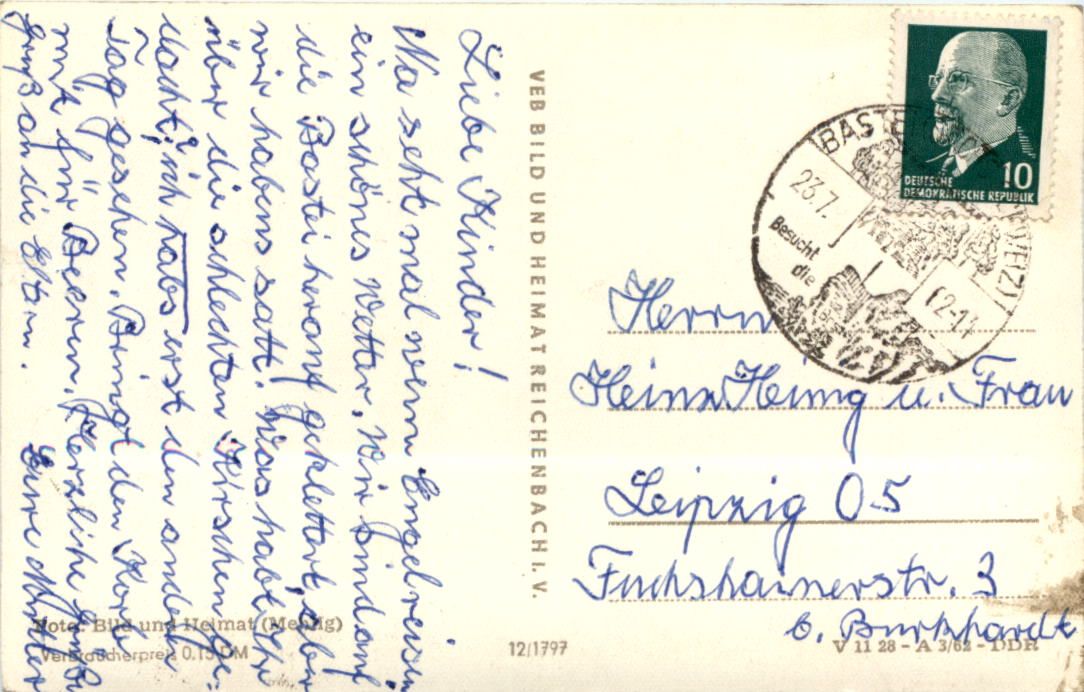 Liebe Kinder!
Na seht mal wenn Engel reisen
ein schönes Wetter. Wir sind auf
die Bastei herauf geklettert, aber
wir habens satt. Was habt Ihr
über die schlechten Kirschen ge-
dacht, ich habs erst den andern
Tag gesehen. Bringt den Korb
mit für Beeren. Herzliche Grüße
gruß an die Eltern. Eure Mutter
Foto: Bild und Heimat (Menzig)
Verbraucherpreis 0.15 DM
VEB BILD UND HEIMAT REICHENBACH I. V.
12/1797
DEUTSCHE
DEMOKRATISCHE REPUBLIK
10
BASTEI
23.7.
62-1
Besucht
die
Herrn
Heinz Heinig u. Frau
Leipzig O5
Fuchshainerstr. 3
b. Burkhardt
V 11 28 - A 3/62 - DDR